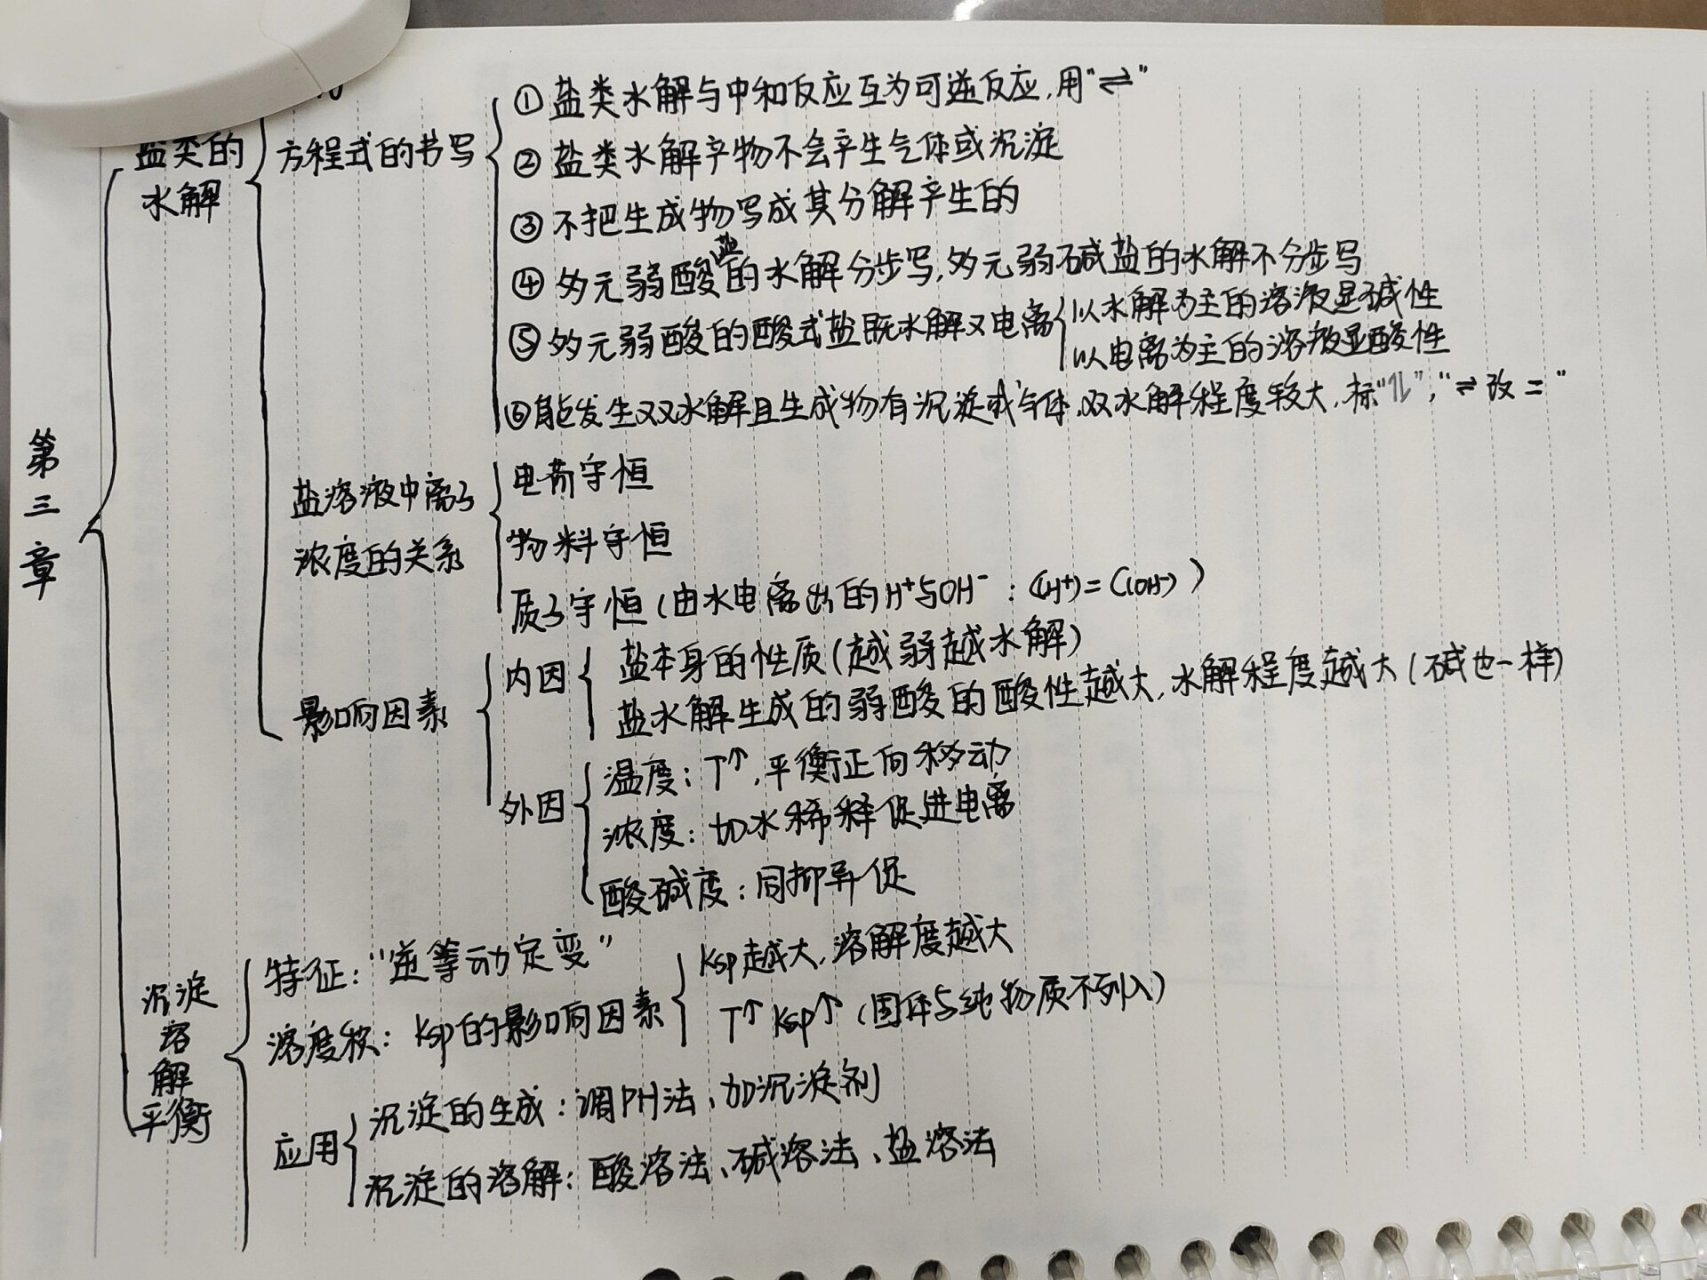 第三章
盐类的
水解
方程式的书写
①盐类水解与中和反应互为可逆反应,用"⇌"
②盐类水解产物不会产生气体或沉淀
③不把生成物写成其分解产生的
④多元弱酸盐的水解分步写,多元弱碱盐的水解不分步写
⑤多元弱酸的酸式盐既水解又电离
以水解为主的溶液显碱性
以电离为主的溶液显酸性
⑥能发生双水解且生成物有沉淀或气体,双水解程度较大,标"↑↓","⇌改="
盐溶液中离子
浓度的关系
电荷守恒
物料守恒
质子守恒(由水电离出的H⁺与OH⁻:C(H⁺)=C(OH⁻))
影响因素
内因
盐本身的性质(越弱越水解)
盐水解生成的弱酸的酸性越大,水解程度越大(碱也一样)
外因
温度:T↑,平衡正向移动
浓度:加水稀释促进电离
酸碱度:同抑异促
沉淀
溶
解
平衡
特征:"逆等动定变"
溶度积:Ksp的影响因素
Ksp越大,溶解度越大
T↑Ksp↑(固体与纯物质不列入)
应用
沉淀的生成:调PH法、加沉淀剂
沉淀的溶解:酸溶法、碱溶法、盐溶法